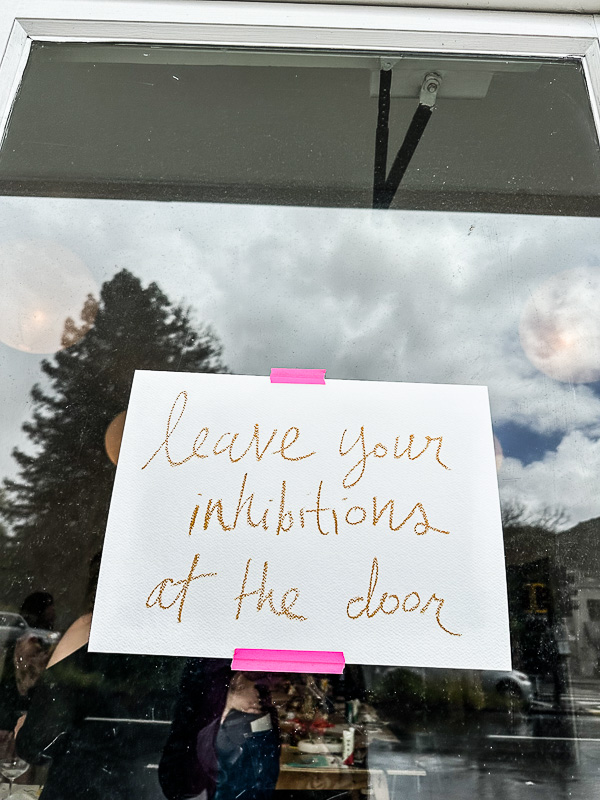 leave your
inhibitions
at the door